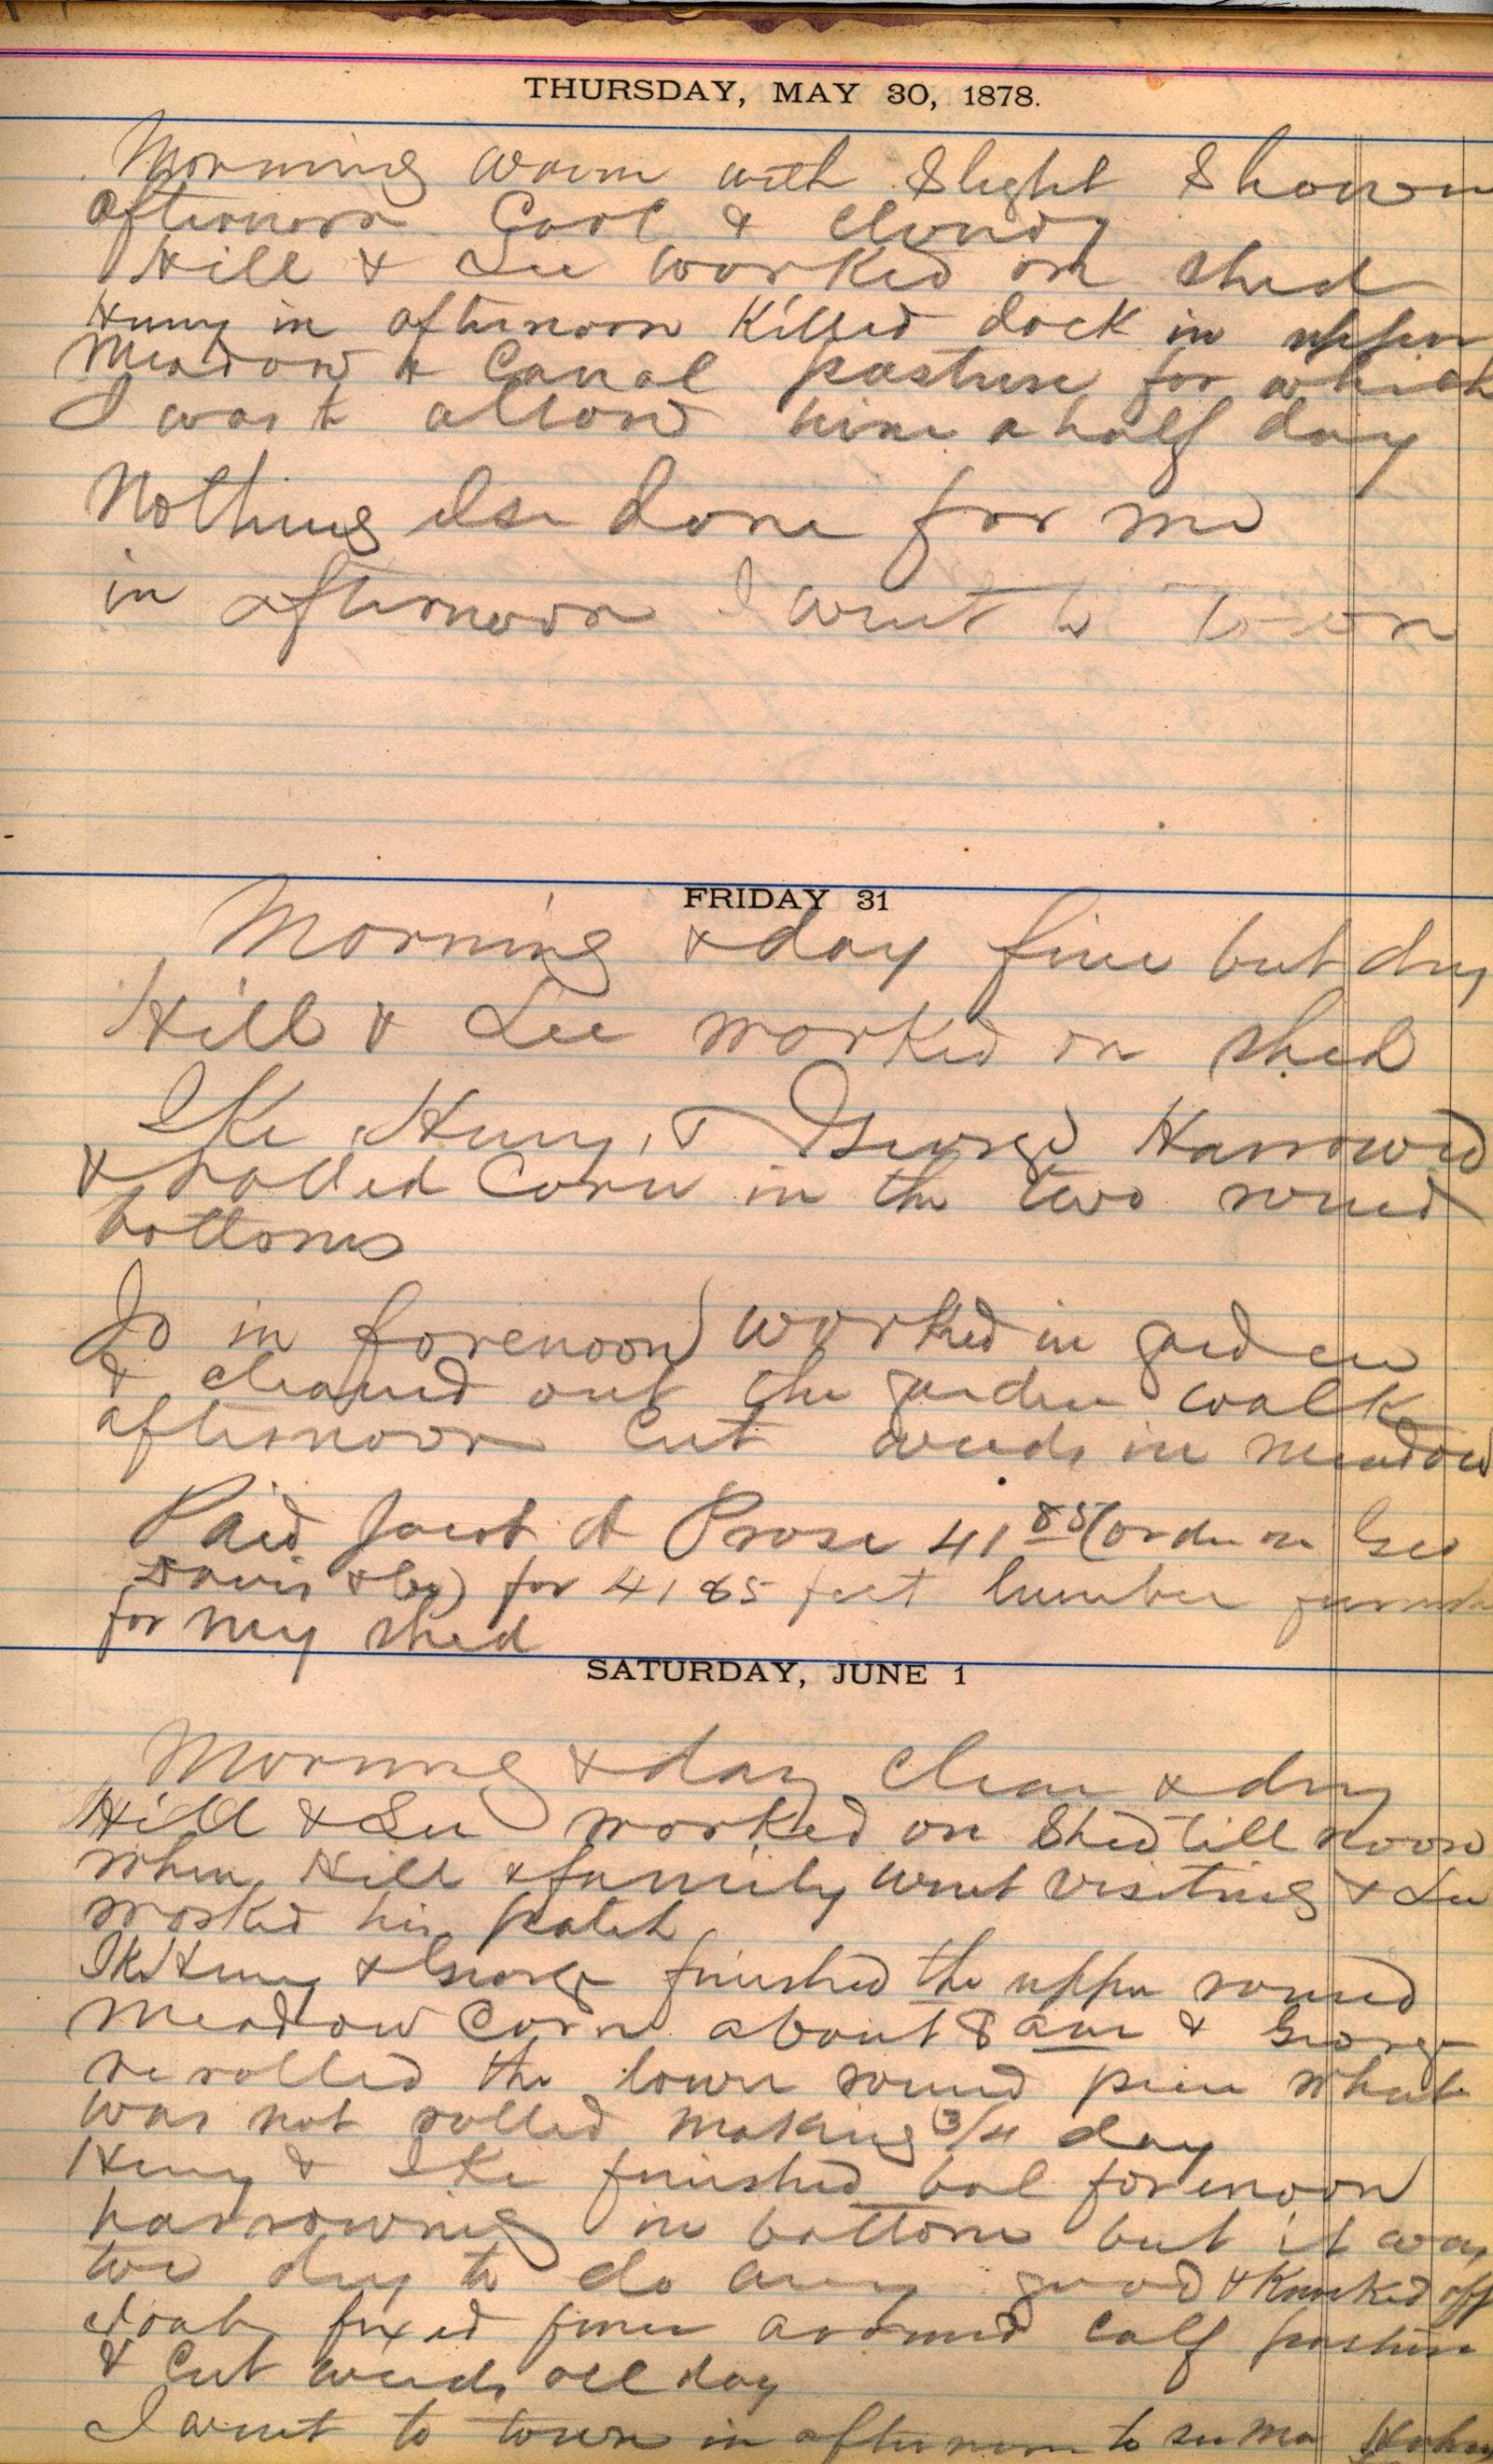 THURSDAY, MAY 30, 1878.
Morning warm with Slight Shower
afternoon Cool & Cloudy
Hill & Lee worked on shed
Henry in afternoon Killed dock in upper
Meadow & Canal pasture for which
I was to allow him a half day
Nothing else done for me
in afternoon I went to Town
FRIDAY 31
Morning & day fine but dry
Hill & Lee worked on shed
Ike, Henry, & George Harrowed
& rolled Corn in the two round
bottoms
Jo in forenoon worked in garden
& cleaned out the garden walk
afternoon Cut weeds in meadow
Paid Jacob A Prose 41 85 (order on Geo
Davis & Co) for 4185 feet lumber
for my shed
SATURDAY, JUNE 1
Morning & day Clear & dry
Hill & Lee worked on Shed till noon
when Hill & family went visiting & Lee
worked his patch
Ike Henry & George finished the upper round
Meadow Corn about 8 am & George
rerolled the lower round piece what
was not rolled making 3/4 day
Henry & Ike finished bal forenoon
harrowing in bottom but it was
too dry to do any good & Knocked off
fixed fence around Calf pasture
& Cut weeds all day
I went to town in afternoon to see